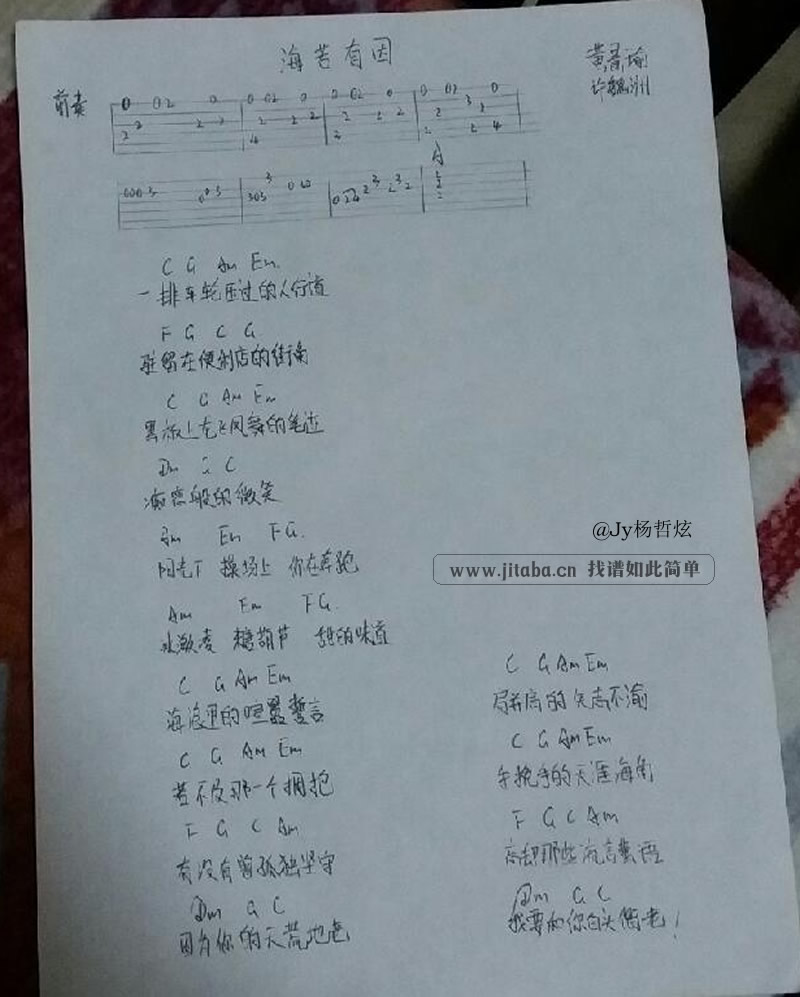 海若有因
黄景瑜
许魏洲
前奏
0 02 0 0 02 0 0 02 0 0 02 0
A
C G Am Em
一排车轮压过的人行道
F G C G
驻留在便利店的街角
C G Am Em
黑板上龙飞凤舞的笔迹
Dm G C
初恋般的微笑
Am Em F G.
阳光下 操场上 你在奔跑
Am Em F G.
冰激凌 糖葫芦 甜的味道
C G Am Em
海浪里的喧嚣誓言
C G Am Em
若不及那一个拥抱
F G C Am
有没有曾孤独坚守
Dm G C
因为你的天荒地老
C G Am Em
肩并肩的矢志不渝
C G Am Em
手挽手的天涯海角
F G C Am
忘却那些流言蜚语
Dm G C
我要和你白头偕老！
@Jy杨哲炫
www.jitaba.cn 找谱如此简单